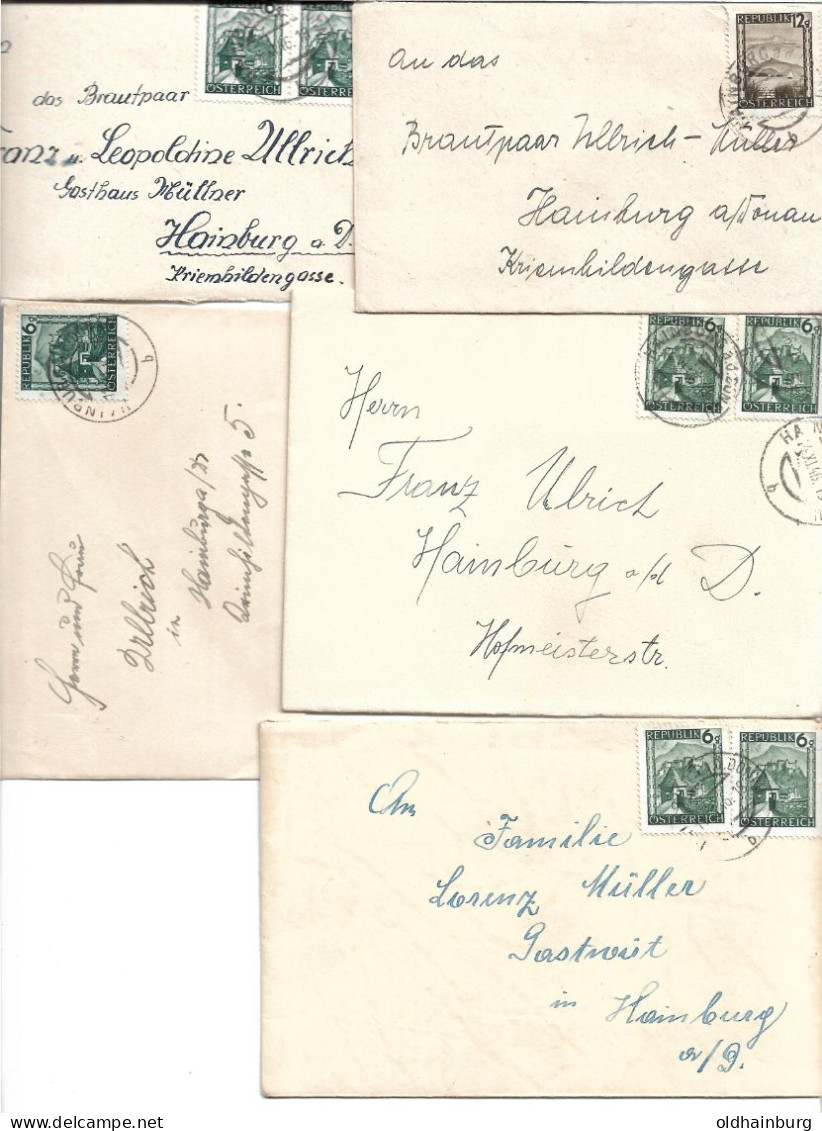 6g
ÖSTERREICH
ÖSTERREICH
das Brautpaar
Franz u. Leopoldine Ullrich
Gasthaus Müllner
Hainburg a. D.
Kriemhildengasse.
REPUBLIK 12g
ÖSTERREICH
An das
Brautpaar Ullrich-Müller
Hainburg a/Donau
Kriemhildengasse
REPUBLIK 6g
ÖSTERREICH
HAINBURG
Herrn und Frau
Ullrich
in
Hainburg a/D
5.
REPUBLIK 6g
ÖSTERREICH
REPUBLIK 6g
ÖSTERREICH
HAINBURG
XI.46
Herrn
Franz Ulrich
Hainburg a/d D.
Hofmeisterstr.
REPUBLIK 6g
ÖSTERREICH
REPUBLIK 6g
ÖSTERREICH
An
Familie
Lorenz Müller
Gastwirt
in Hainburg
a/D.
oldhainburg